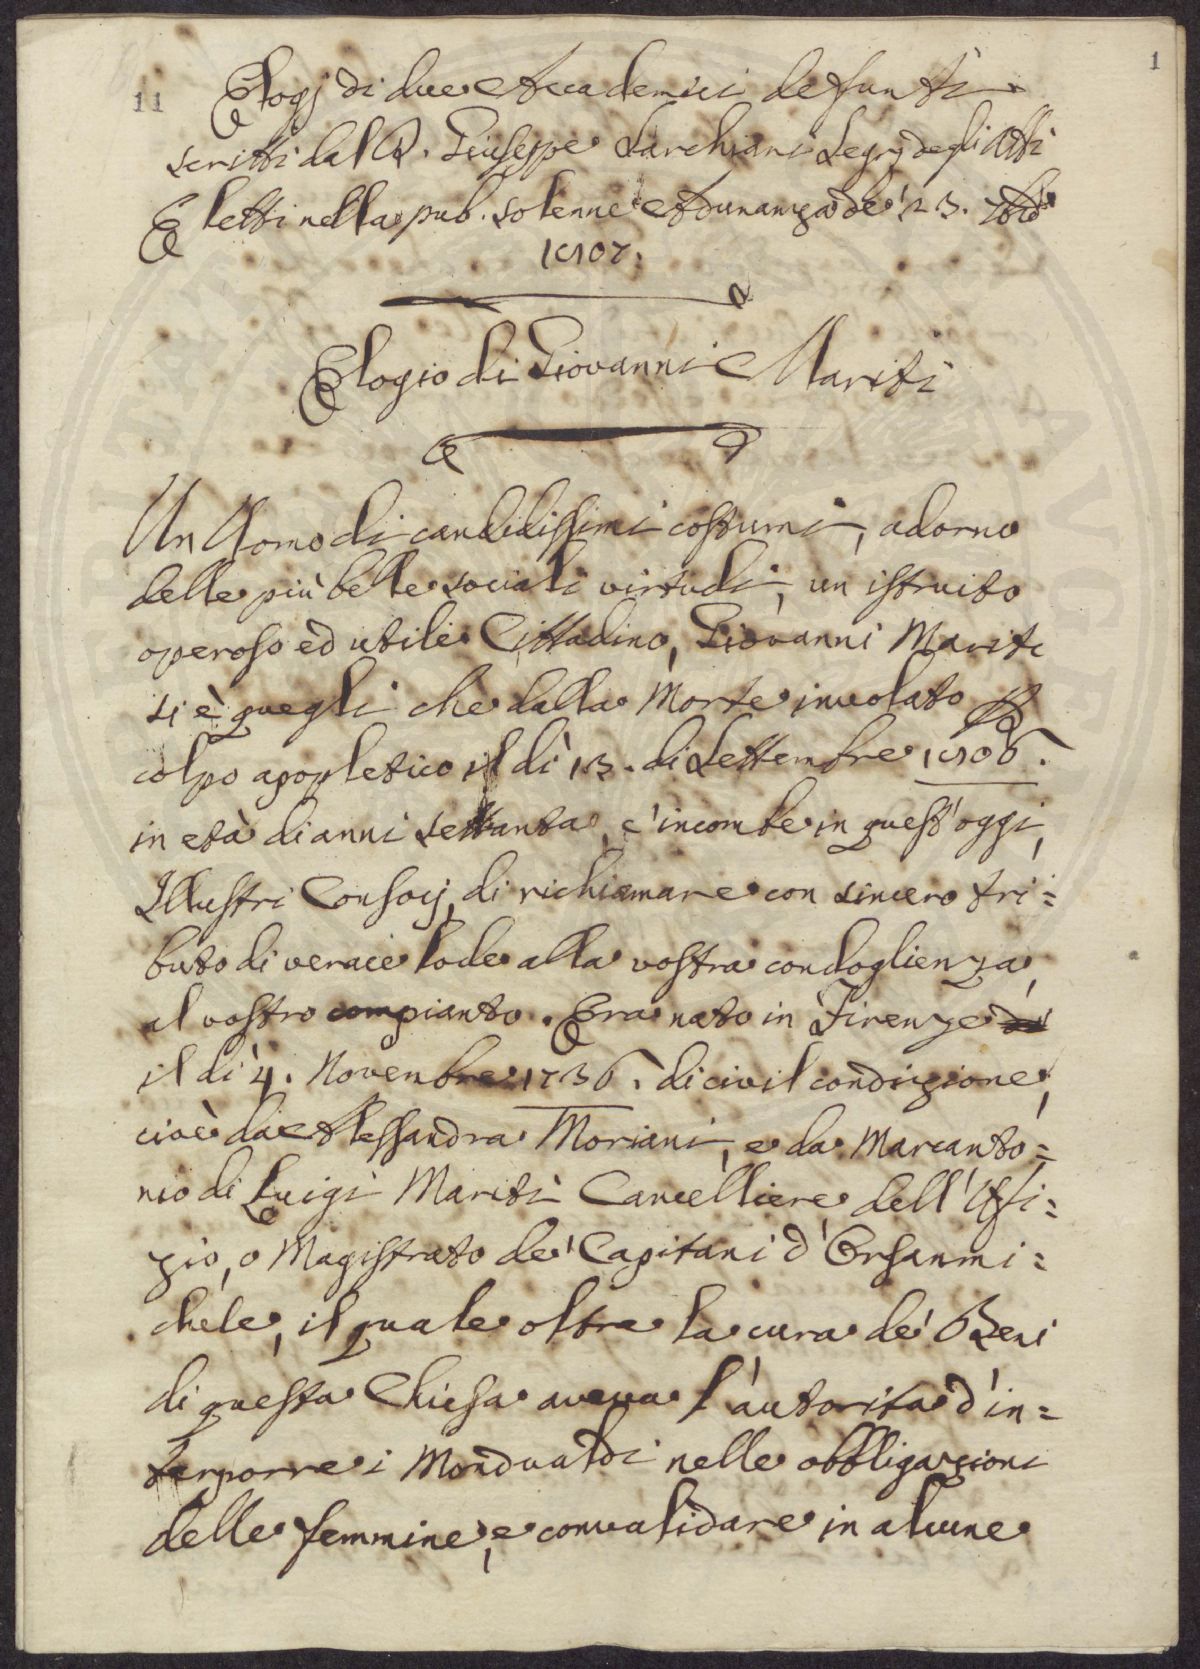 11
1
Elogj di due Accademici defunti
scritti dal D. Giuseppe Sarchiani Segr. degli Atti
E letti nella pub. solenne Adunanza de' 23.
1807.
Elogio di Giovanni Mariti
Un Uomo di candidissimi costumi, adorno
delle più belle sociali virtudi, un istruito
operoso ed utile Cittadino, Giovanni Mariti
si è quegli che dalla Morte involato
colpo apopletico il dì 13. di Settembre 1806.
in età di anni settanta, c'incombe in quest'oggi,
Illustri Consocj, di richiamare con sincero tri=
buto di verace lode alla vostra condoglienza,
al vostro compianto. Era nato in Firenze
il dì 4. Novembre 1736. di civil condizione,
cioè da Alessandra Moriani, e da Marcanto=
nio di Luigi Mariti Cancelliere dell'Uffi=
zio, o Magistrato de' Capitani d'Orsanmi=
chele, il quale oltre la cura de' Beni
di questa Chiesa aveva l'autorita d'in=
terporre i Mondualdi nelle obbligazioni
delle femmine, e convalidare in alcune